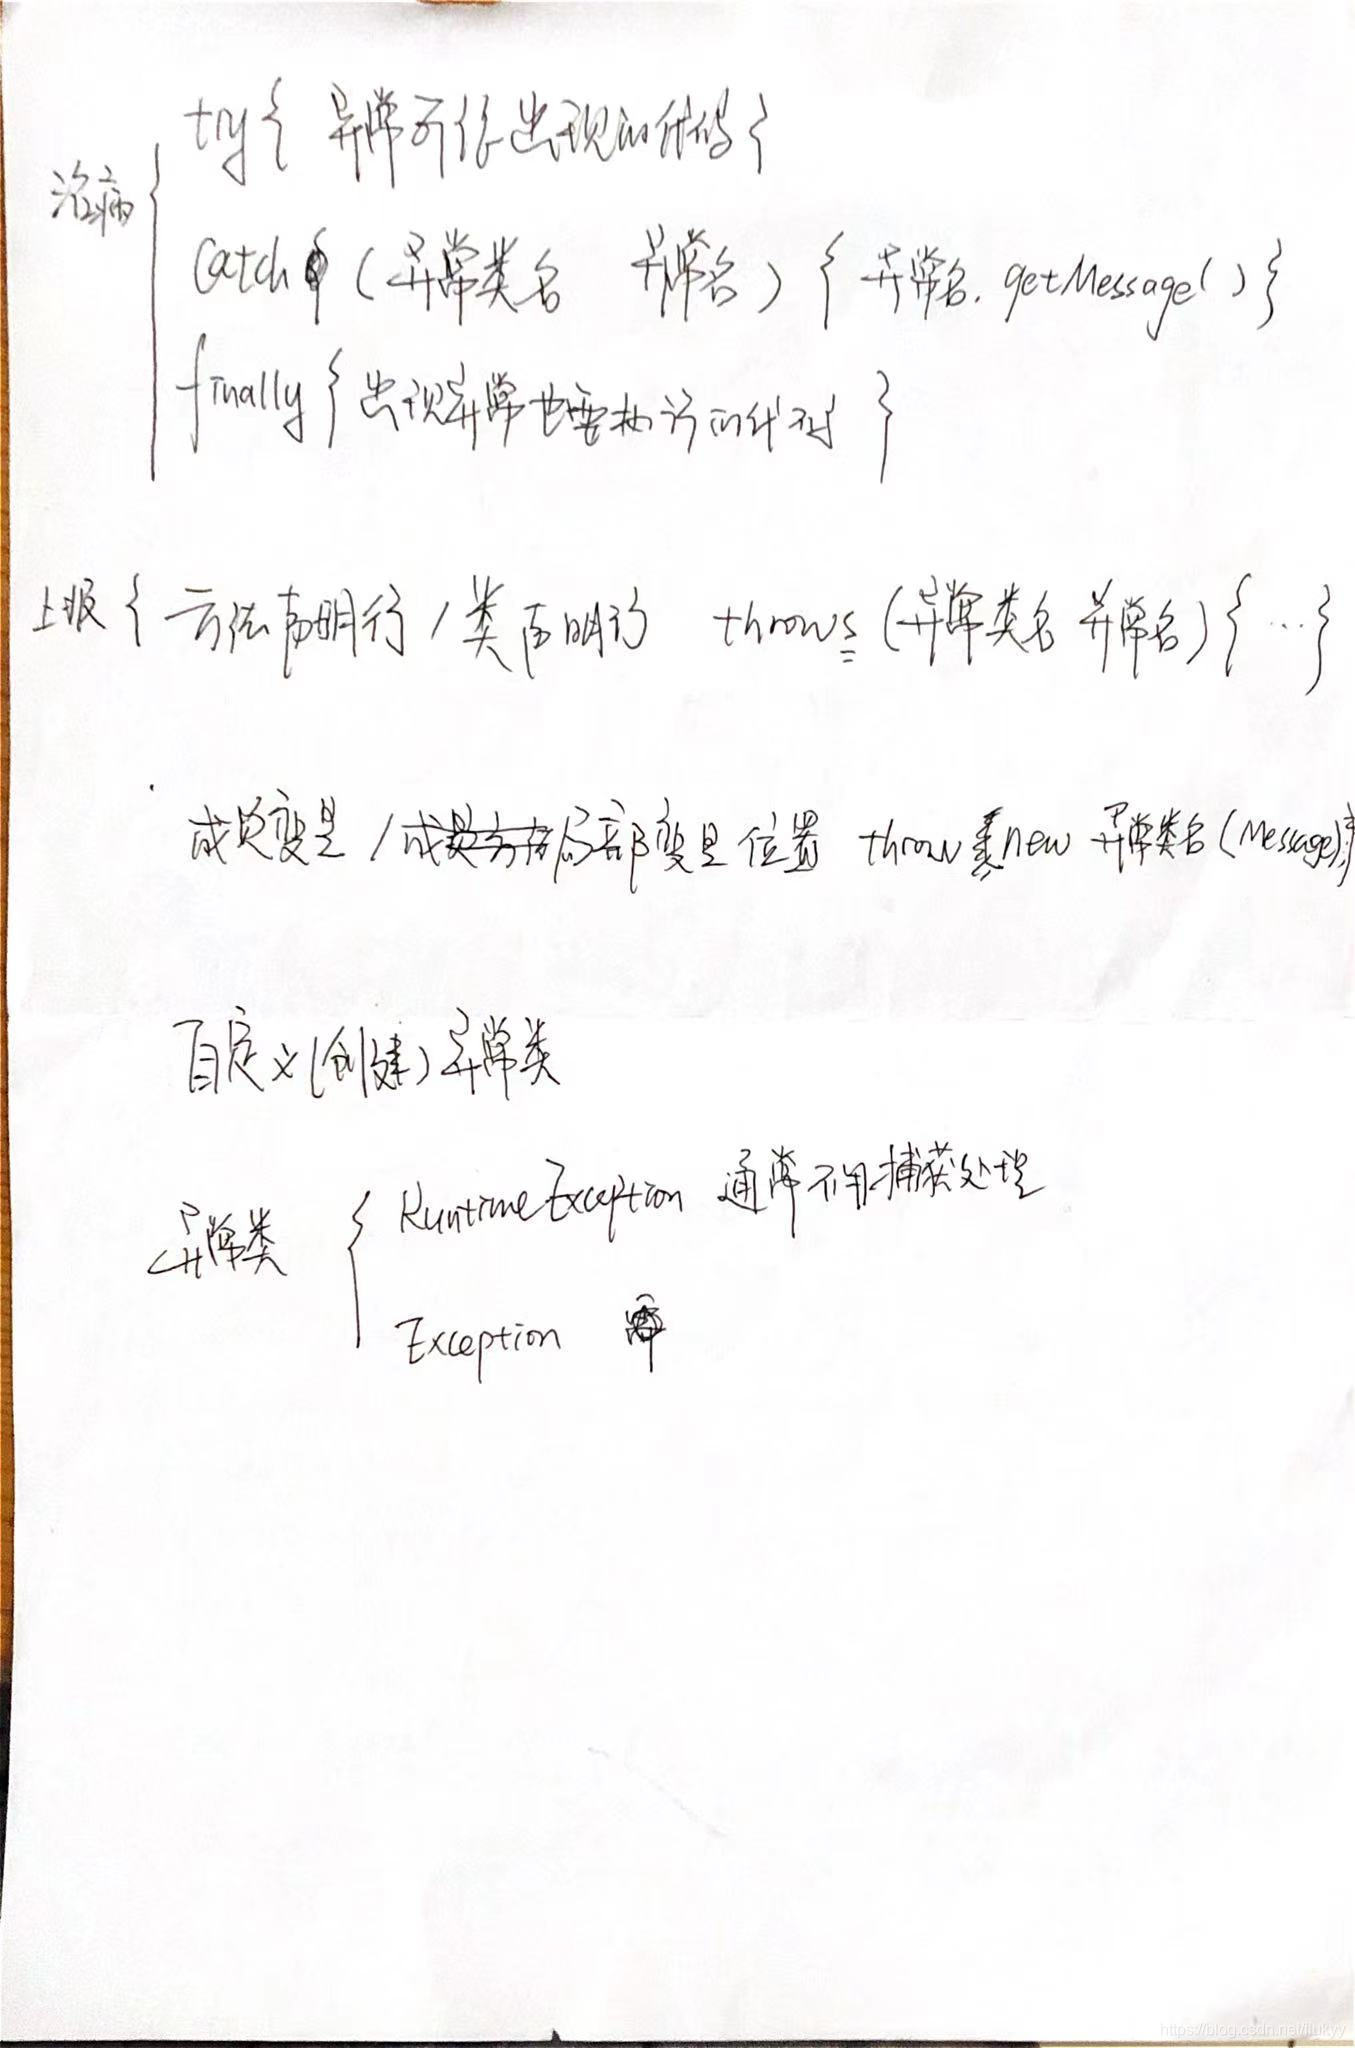 治病
try { 异常可能出现的代码 {
catch (异常类名 异常名) { 异常名. getMessage( ) }
finally { 出现异常也要执行的代码 }
上报 { 方法声明行 / 类声明行 throws (异常类名 异常名) { … }
成员变量 / 局部变量位置 throw new 异常类名 (Message);
自定义(创建)异常类
异常类 { RuntimeException 通常不用捕获处理
Exception
https://blog.csdn.net/ilukyy